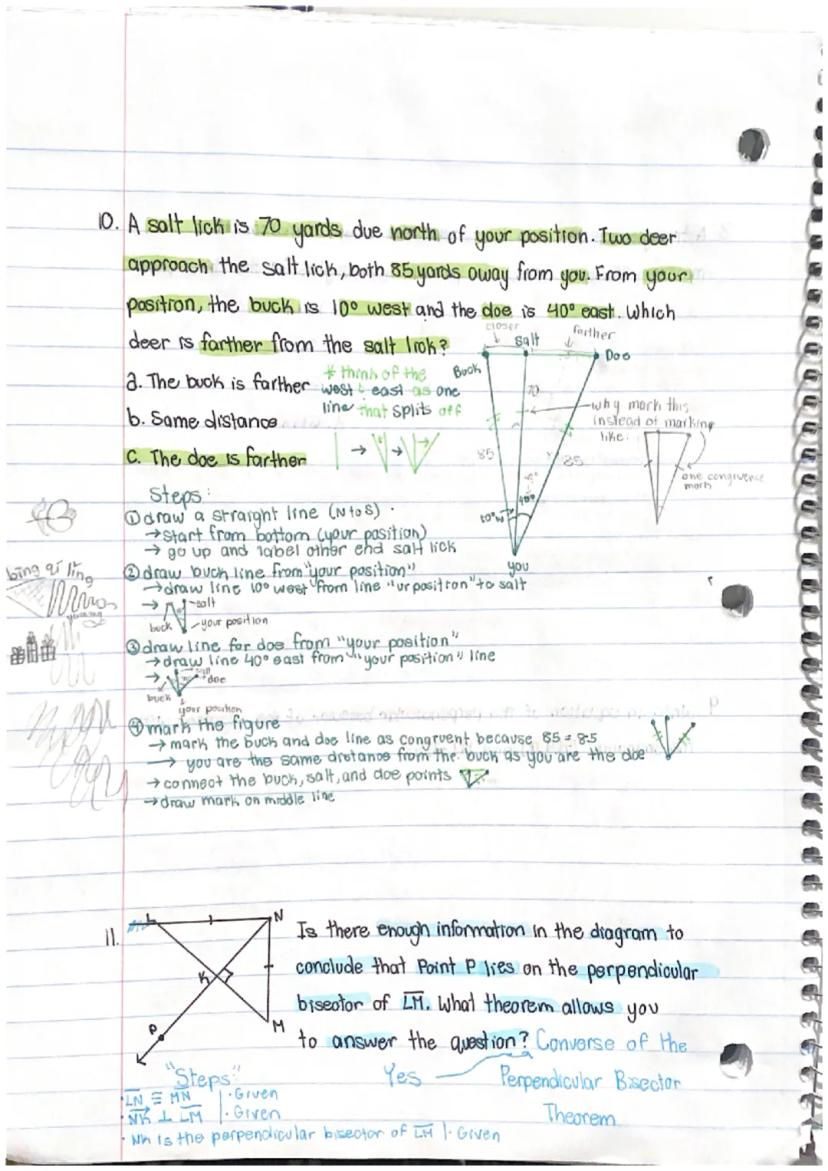 10. A salt lick is 70 yards due north of your position. Two deer
approach the salt lick, both 85 yards away from you. From your
position, the buck is 10° west and the doe is 40° east. Which
deer is farther from the salt lick?
closer
salt
farther
Doe
Buck
a. The buck is farther
* think of the
west & east as one
line that splits off
b. Same distance
c. The doe is farther
70
why mark this
instead of marking
like.
85
85
one congruence
mark
40°
10°W
you
Steps:
① draw a straight line (N to S).
→ start from bottom (your position)
→ go up and label other end salt lick
② draw buck line from "your position"
→ draw line 10° west from line "ur position" to salt
→
salt
buck
your position
③ draw line for doe from "your position"
→ draw line 40° east from "your position" line
→
salt
doe
buck
your position
④ mark the figure
→ mark the buck and doe line as congruent because 85 = 85
→ you are the same distance from the buck as you are the doe
→ connect the buck, salt, and doe points
→ draw mark on middle line
11.
L
N
K
M
P
Is there enough information in the diagram to
conclude that Point P lies on the perpendicular
bisector of LM. What theorem allows you
to answer the question? Converse of the
Yes
Perpendicular Bisector
Theorem
"Steps"
· LN ≅ MN | · Given
· NK ⊥ LM | · Given
· NK is the perpendicular bisector of LM | · Given